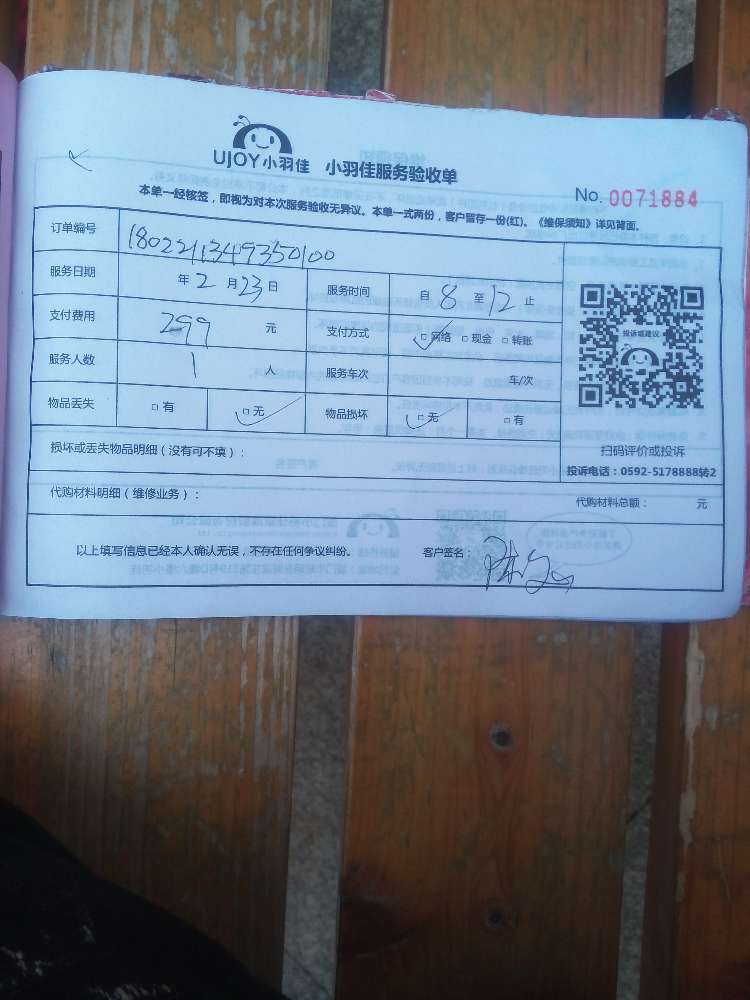 UJOY小羽佳 小羽佳服务验收单
No. 0071884
本单一经核签，即视为对本次服务验收无异议。本单一式两份，客户留存一份(红)。《维保须知》详见背面。
订单编号 1802211349350100
服务日期 年2月23日 服务时间 自8至12止
支付费用 299 元 支付方式 □网络 □现金 □转账
服务人数 1 人 服务车次 车/次
物品丢失 □有 □无 物品损坏 □无 □有
投诉或建议
扫码评价或投诉
投诉电话：0592-5178888转2
损坏或丢失物品明细（没有可不填）：
代购材料明细（维修业务）： 代购材料总额： 元
以上填写信息已经本人确认无误，不存在任何争议纠纷。 客户签名：